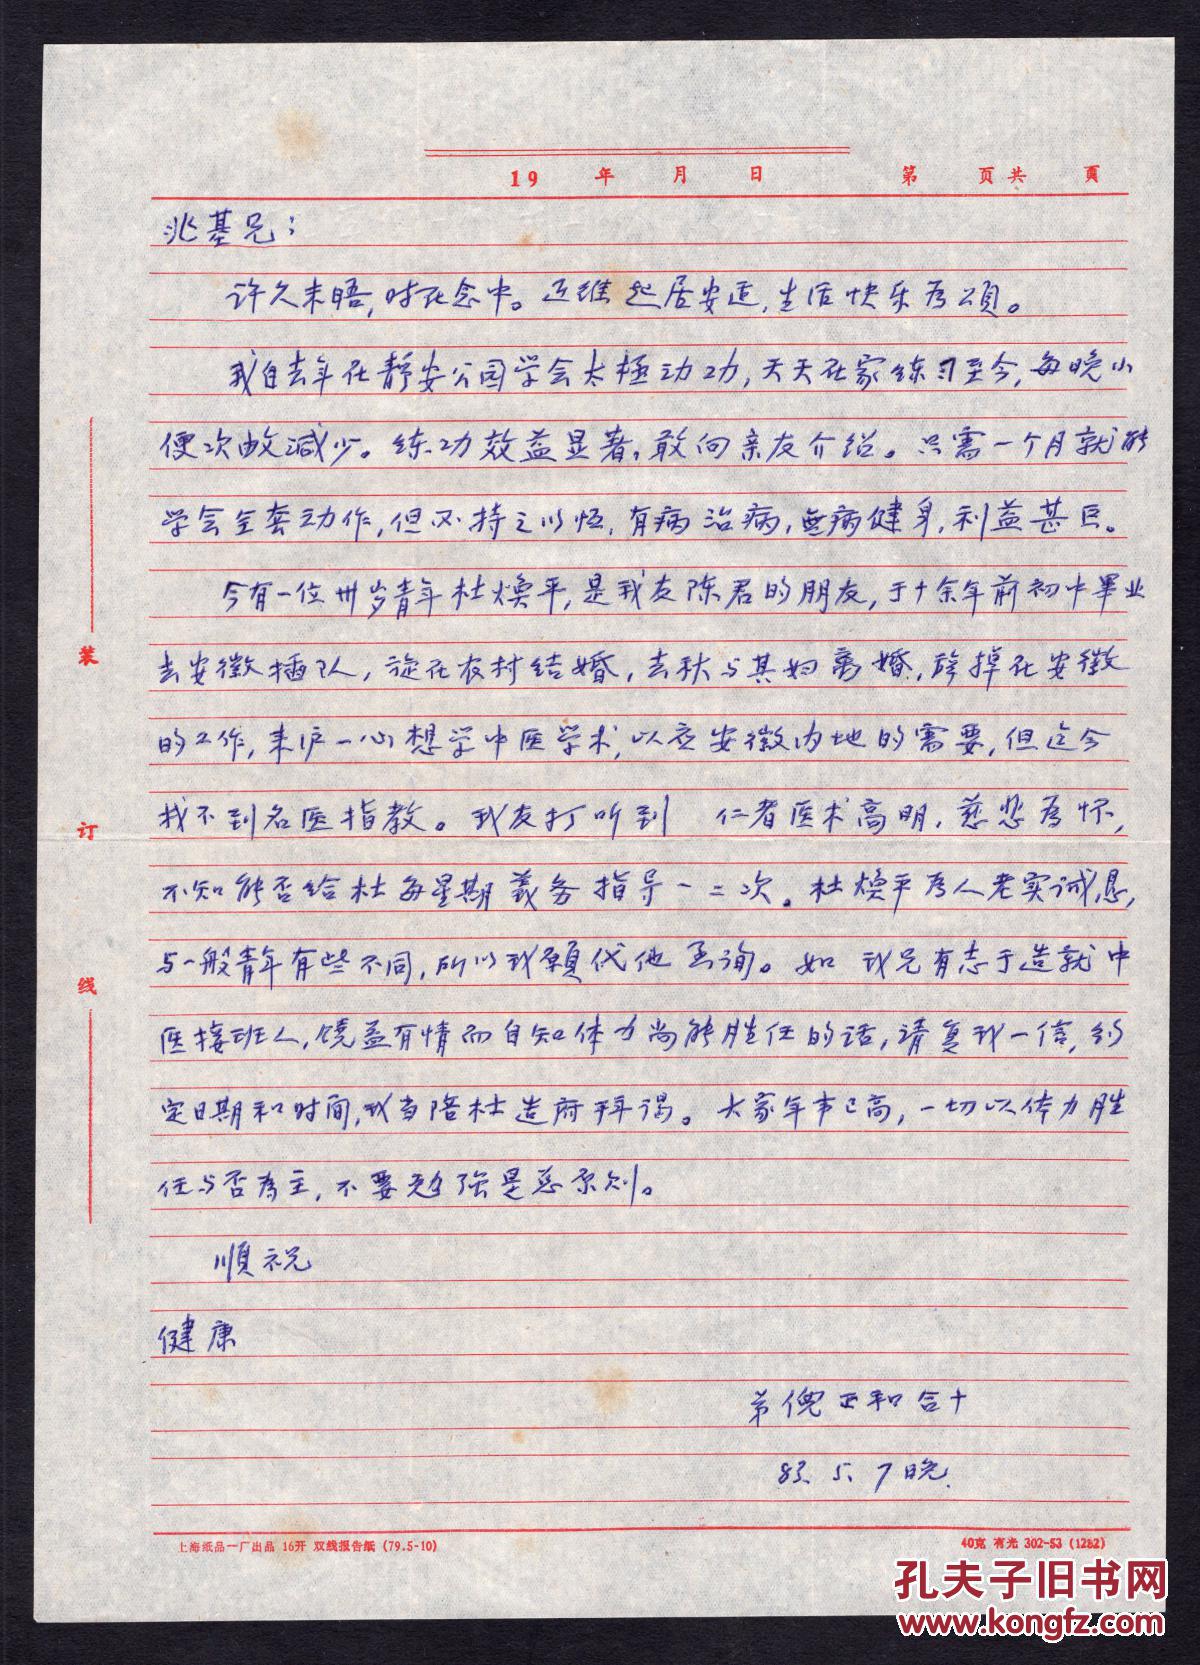 19 年 月 日 第 页共 頁
兆基兄：
许久未晤，时在念中。近维起居安适，生活快乐为頌。
我自去年在静安公园学会太極动功，天天在家练习至今，每晚小
便次数减少。练功效益显著，敢向亲友介绍。只需一个月就能
学会全套动作，但必持之以恒，有病治病，無病健身，利益甚巨。
今有一位卅岁青年杜焕平，是我友陈君的朋友，于十余年前初中畢业
去安徽插队，旋在农村结婚，去秋与其妇离婚，辞掉在安徽
的工作，来沪一心想学中医学术，以应安徽内地的需要，但迄今
找不到名医指教。我友打听到 仁者医术高明，慈悲为怀，
不知能否给杜每星期義务指导一二次。杜焕平为人老实诚恳，
与一般青年有些不同，所以我願代他函询。如 我兄有志于造就中
医接班人，饶益有情而自知体力尚能胜任的话，请复我一信，约
定日期和时间，我当陪杜造府拜谒。大家年事已高，一切以体力胜
任与否为主，不要勉强是总原则。
順祝
健康
弟倪正和合十
83. 5. 7晚.
装
订
线
上海纸品一厂出品 16开 双线报告纸 (79.5-10)
40克 有光 302-53 (1282)
孔夫子旧书网
www.kongfz.com